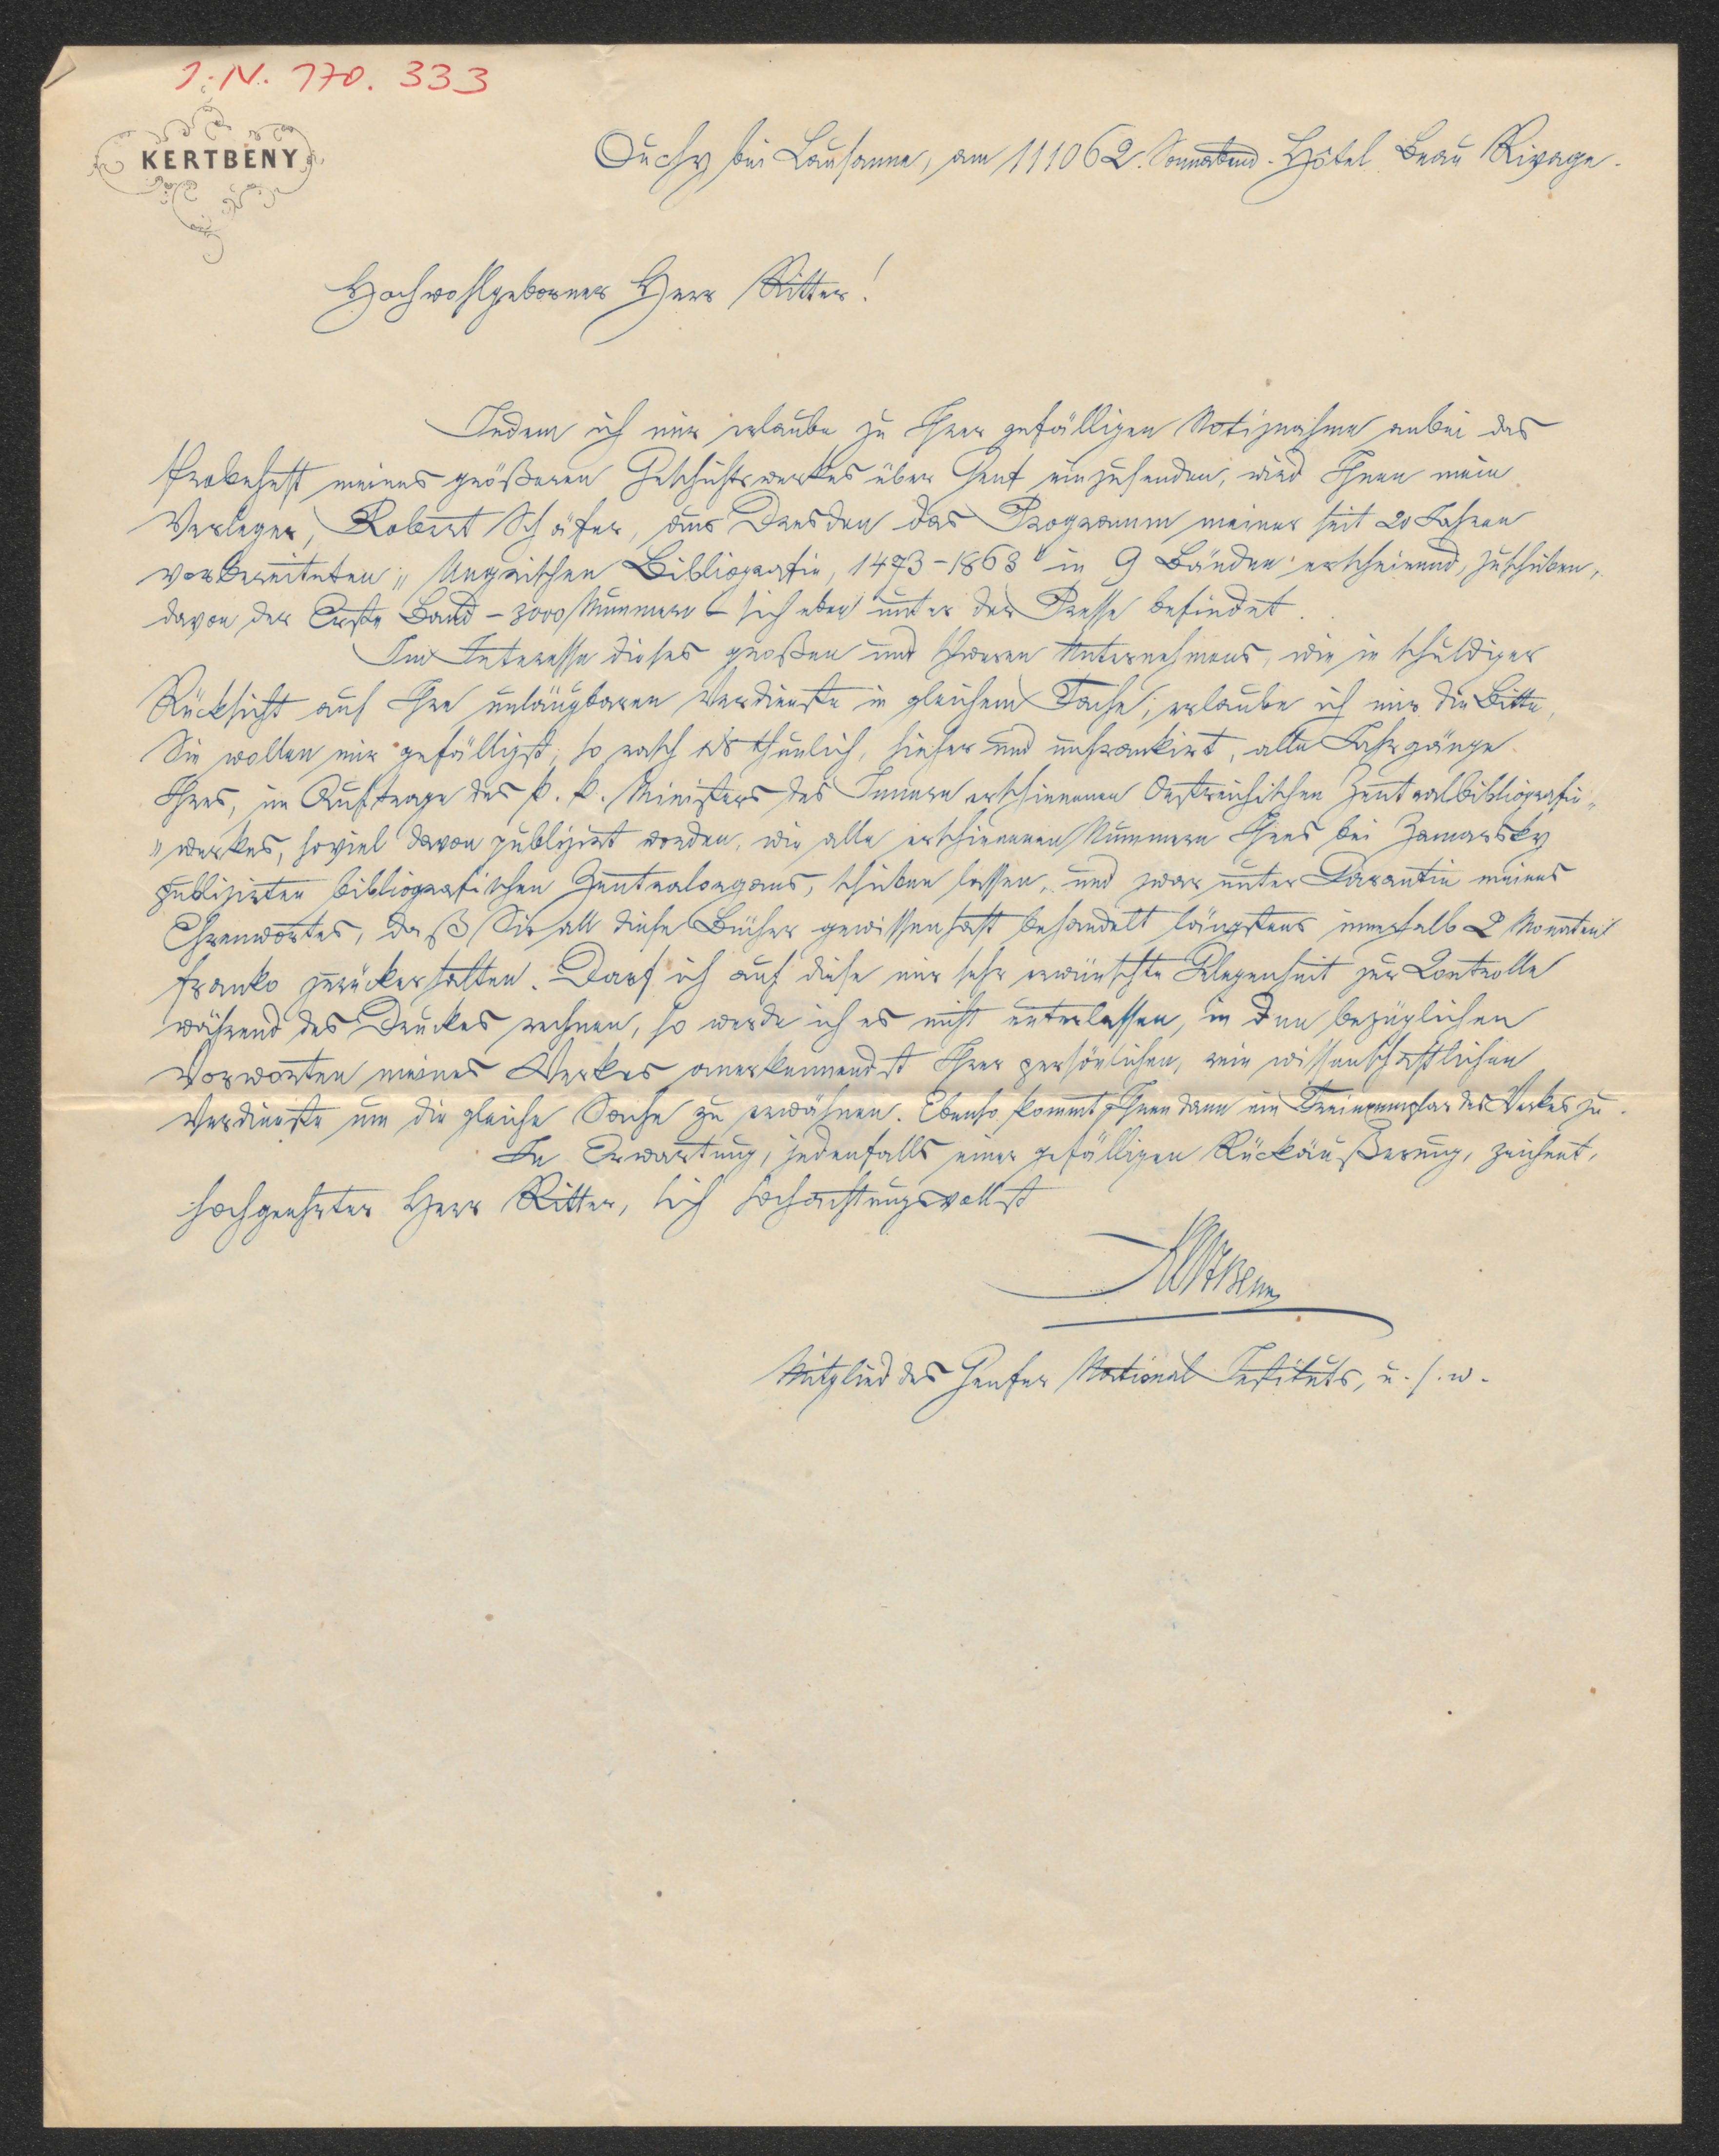 I. N. 170. 333
KERTBENY
Ouchy bei Lausanne, am 111062. Sonnabend. Hôtel Beau Rivage.
Hochwohlgeborner Herr Ritter!
Indem ich mir erlaube zu Ihrer gefälligen Notiznahme anbei das
Probeheft meines größeren Geschichtswerkes über Genf einzusenden, wird Ihnen mein
Verleger, Robert Schäfer, aus Dresden das Programm meiner seit 20 Jahren
vorbereiteten „Ungrischen Bibliografie, 1473-1863" in 9 Bänden erscheinend, zuschiken,
davon der Erste Band - 3000 Nummern - sich eben unter der Presse befindet.
Im Interesse dieses großen und schweren Unternehmens, wie in schuldiger
Rücksicht auf Ihre unläugbaren Verdienste in gleichem Fache, erlaube ich mir die Bitte,
Sie wollen mir gefälligst, so rasch als thunlich, hieher und unfrankirt, alle Jahrgänge
Ihres, im Auftrage des k. k. Ministers des Innern erschienenen Oestreichischen Zentralbibliografie„
„werkes, soviel davon publizirt worden, wie alle erschienenen Nummern Ihres bei Zamarsky
publizirten bibliografischen Zentralorgans, schiken lassen, und zwar unter Garantie meines
Ehrenwortes, daß Sie all diese Bücher gewissenhaft behandelt längstens innerhalb 2 Monaten
franko zurückerhalten. Darf ich auf diese mir sehr erwünschte Gelegenheit zur Controlle
während des Druckes rechnen, so werde ich es nicht unterlassen, in den bezüglichen
Vorworten meines Werkes anerkennendst Ihrer persönlichen, rein wissenschaftlichen
Verdienste um die gleiche Sache zu erwähnen. Ebenso kommt Ihnen dann ein Freiexemplar des Werkes zu.
In Erwartung, jedenfalls einer gefälligen Rückäußerung, zeichnet,
hochgeehrter Herr Ritter, sich hochachtungsvollst
Kertbeny
Mitglied des Genfer National Instituts, u. s. w.